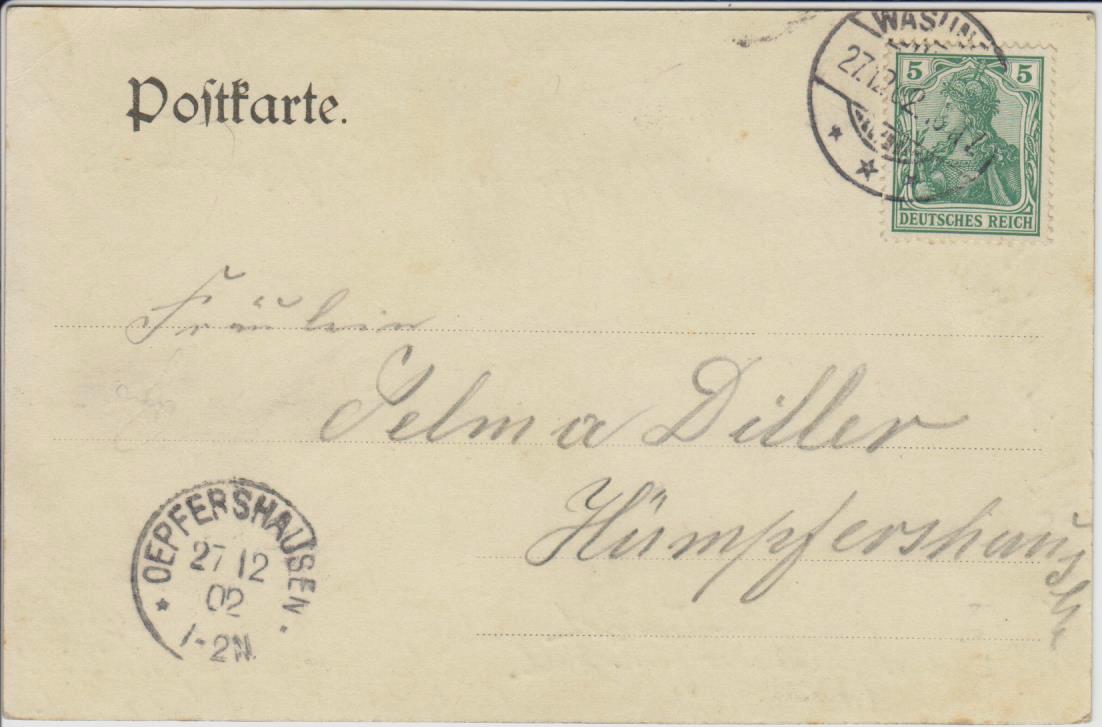 Postkarte.
WASUN
27.12.02
5 5
DEUTSCHES REICH
Fräulein
Selma Diller
Hümpfershausen
OEPFERSHAUSEN
27 12
02
1-2N.